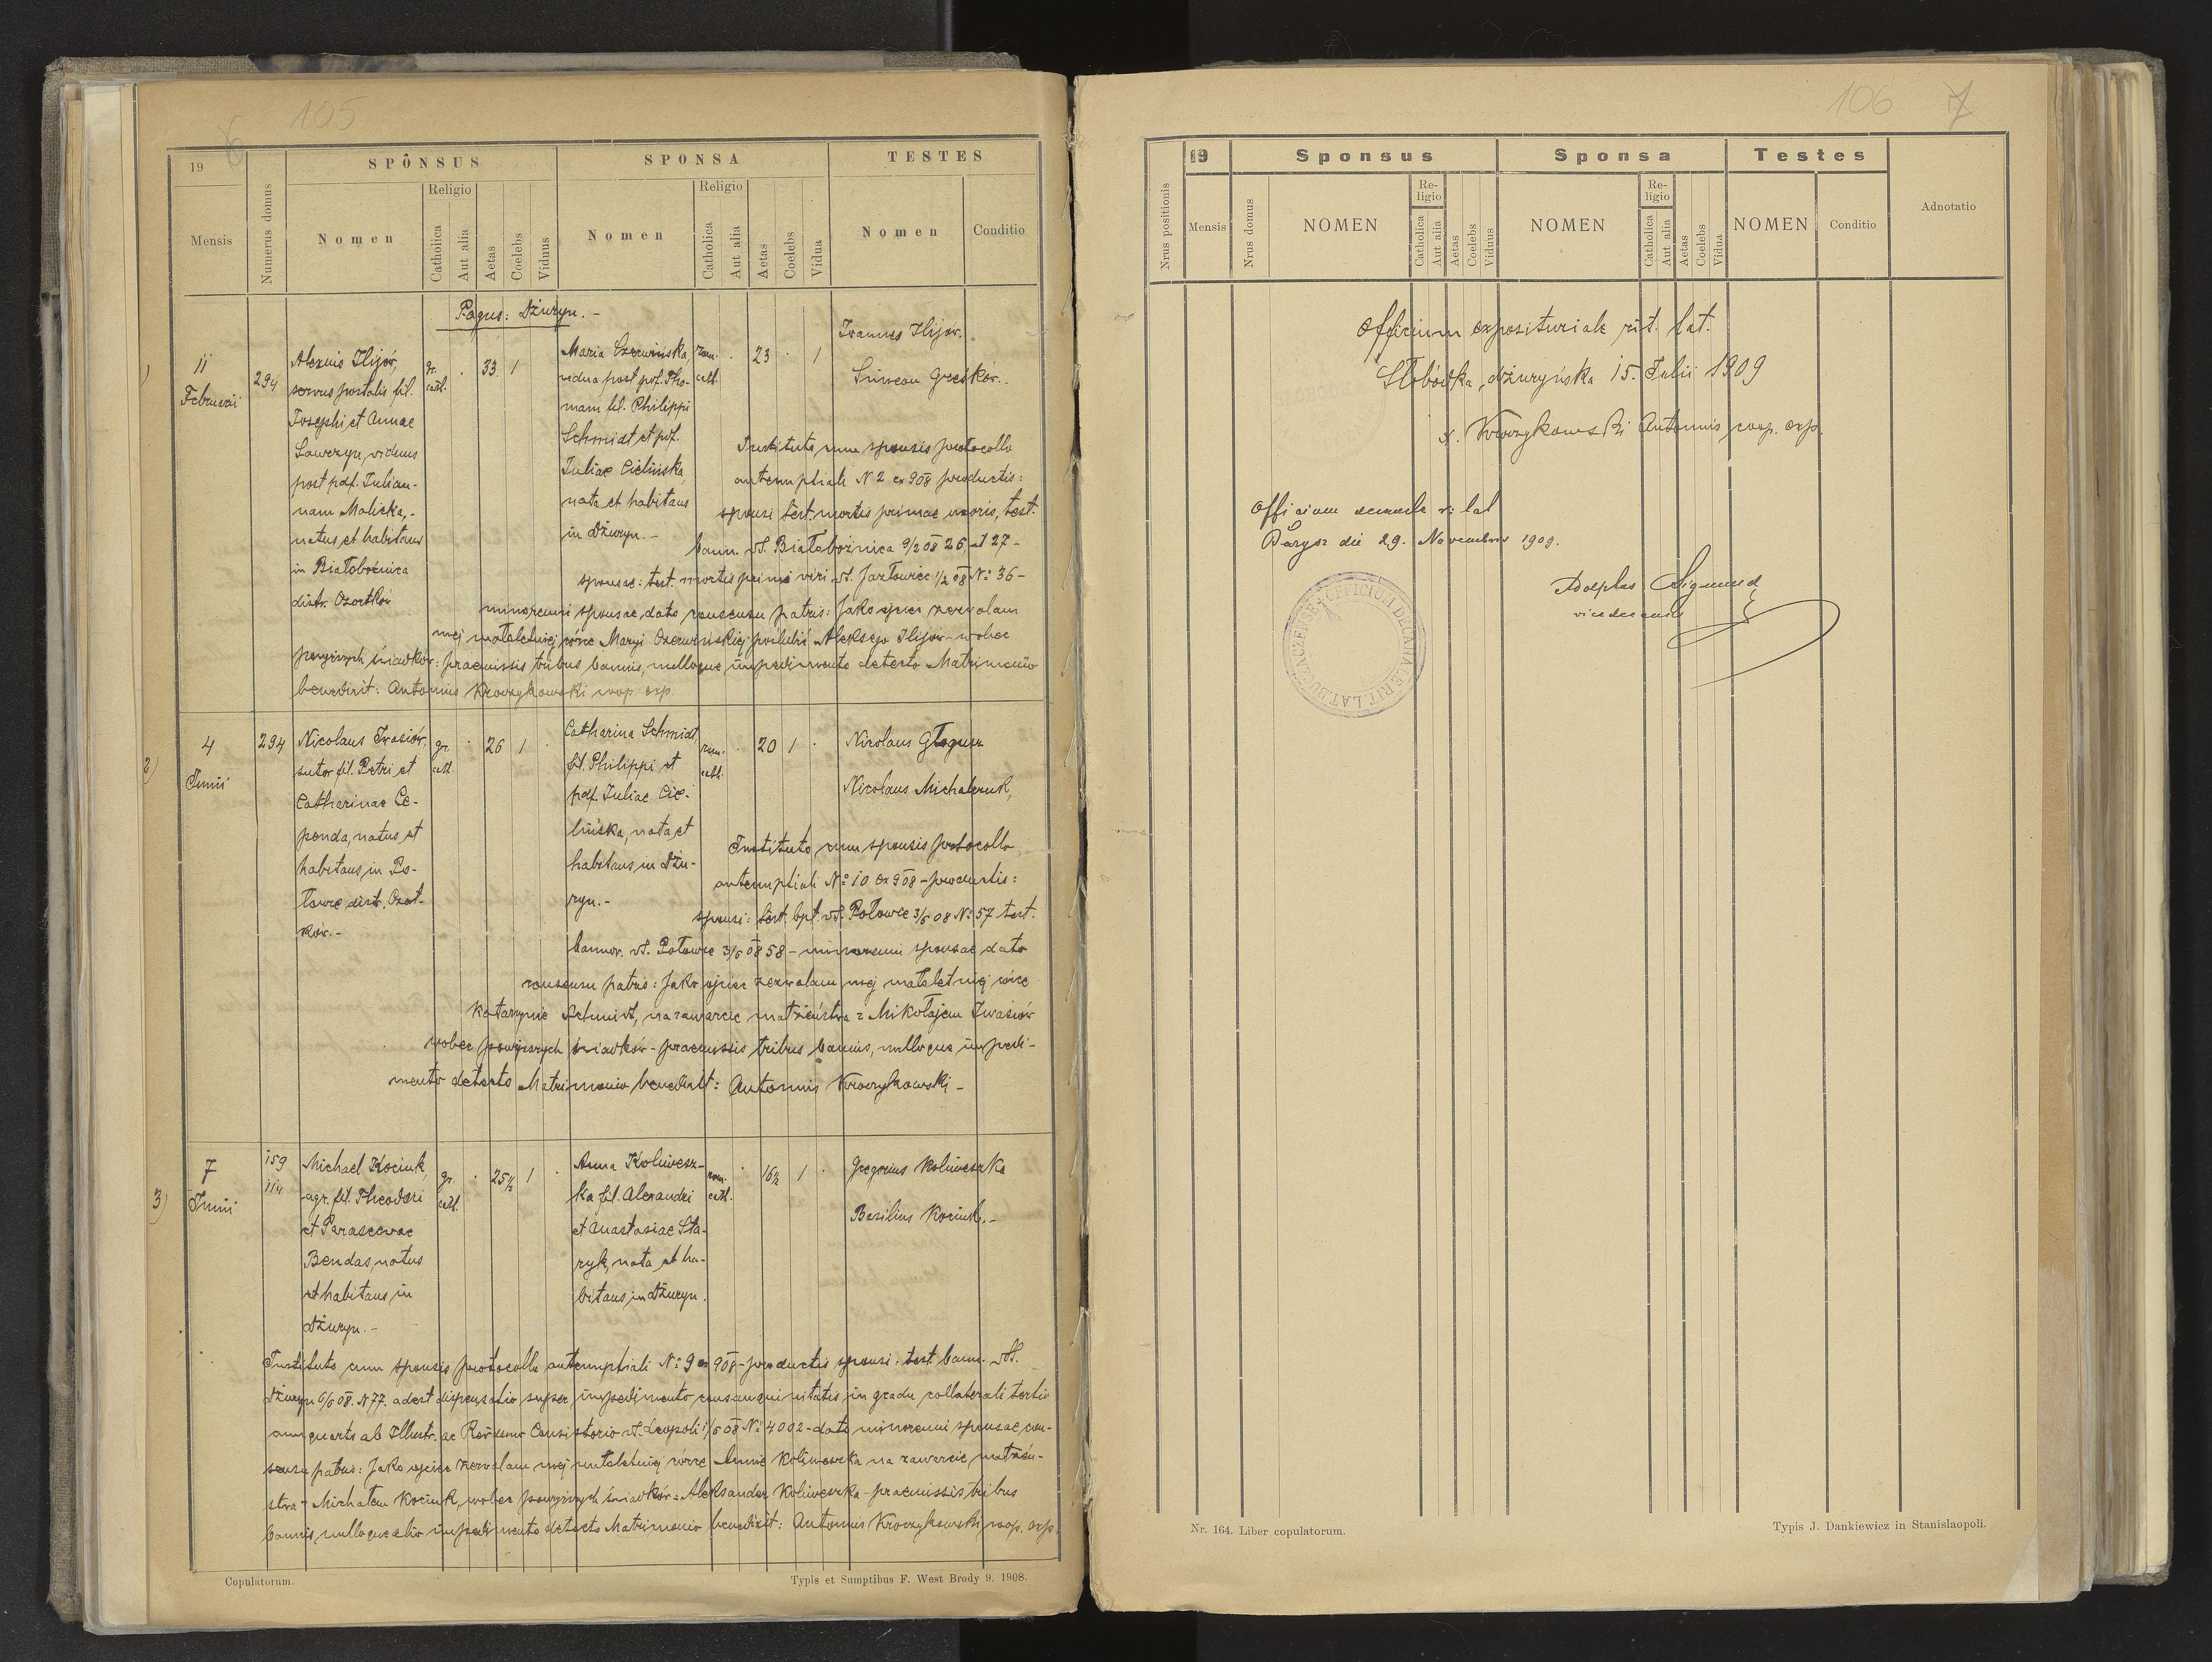 105
6
19
SPONSUS
SPONSA
TESTES
Mensis
Numerus domus
Nomen
Religio
Catholica
Aut alia
Aetas
Coelebs
Viduus
Nomen
Religio
Catholica
Aut alia
Aetas
Coelebs
Vidua
Nomen
Conditio
Pagus: Dżuryn. -
11
Februarii
294
Alexius Ilijów,
servus portalis fil.
Josephi et Annae
Ławczyn, viduus
post pdf. Julian-
nam Malicka, -
natus et habitans
in Białobożnica
distr. Czortków
gr.
cath.
33
1
Maria Czerwińska,
vidua post pdf. Tho-
mam fil. Philippi
Schmidt et pdf.
Juliae Cielińska,
nata et habitans
in Dżuryn. -
rom.
cath.
23
1
Joannes Ilijów.
Simeon Greskow.
Instituto cum sponsis protocollo
antenuptiali N 2 ex 908 productis:
sponsi test. mortis primae uxoris, test.
bann. dt. Białobożnica 9/2 08 26 et 27 -
sponsae: test. mortis primi viri dt. Jazłowiec 1/2 08 No 36 -
minorenni sponsae dato consensu patris: Jako ojciec zezwalam
mej małoletniej córce Maryi Czerwińskiej poślubić Aleksego Ilijów - wobec
powyższych świadków: praemissis tribus bannis, nulloque impedimento detecto Matrimonio
benedixit: Antonius Kroczykowski coop. exp.
2)
4
Junii
294
Nicolaus Iwasiów,
sutor fil. Petri et
Catharinae Ce-
penda, natus et
habitans in Po-
łowce distr. Czort-
ków. -
gr.
cath.
26
1
Catharina Schmidt,
fil. Philippi et
pdf. Juliae Cie-
lińska, nata et
habitans in Dżu-
ryn. -
rom.
cath.
20
1
Nicolaus
Nicolaus Michalczuk,
Instituto cum sponsis protocollo
antenuptiali No 10 ex 908 - productis:
sponsi: test. bpt. dt. Połowce 3/6 08 No 57 test.
bannor. dt. Połowce 3/6 08 58 - minorenni sponsae dato
consensu patris: Jako ojciec zezwalam mej małoletniej córce
Katarzynie Schmidt, na zawarcie małżeństwa z Mikołajem Iwasiów
wobec powyższych świadków - praemissis tribus bannis, nulloque impedi-
mento detecto Matrimonio benedixit: Antonius Kroczykowski -
3)
7
Junii
159
114
Michael Kociuk,
agr. fil. Theodori
et Parascevae
Bendas, natus
et habitans in
Dżuryn. -
gr.
cath.
25 1/2
1
Anna Koliweszka-
ka fil. Alexandri
et Anastasiae Sta-
ryk, nata et ha-
bitans in Dżuryn.
rom.
cath.
16 1/2
1
Gregorius Koliweszka
Basilius Kociuk. -
Instituto cum sponsis protocollo antenuptiali No 9 ex 908 - productis sponsi: test. bann. dt.
Dżuryn 6/6 08. N 77. adest dispensatio super impedimento consanguinitatis in gradu collaterali tertio
cum quarto ab Illustr. ac Rev̄dmo Consistorio dt. Leopoli 1/6 08 No 4002 - dato minorenni sponsae con-
sensu patris: Jako ojciec zezwalam mej małoletniej córce Annie Koliweszka na zawarcie małżeń-
stwa z Michałem Kociuk, wobec powyższych świadków: Aleksander Koliweszka - praemissis tribus
bannis, nulloque alio impedimento detecto Matrimonio benedixit: Antonius Kroczykowski coop. exp.
Copulatorum.
Typis et Sumptibus F. West Brody 9. 1908.
106
7
19
Sponsus
Sponsa
Testes
Nrus positionis
Mensis
Nrus domus
NOMEN
Re-
ligio
Catholica
Aut alia
Aetas
Coelebs
Viduus
NOMEN
Re-
ligio
Catholica
Aut alia
Aetas
Coelebs
Vidua
NOMEN
Conditio
Adnotatio
Officium expositurale rit. lat.
Słobódka dżuryńska 15. Julii 1909
x. Kroczykowski Antonius coop. exp.
Officium decanale r: lat
Barysz die 29. Novembris 1909.
Adolphus Sigmund
vicedecanus
OFFICIUM DECANALE RIT. LAT. BUCZACZENSE
Nr. 164. Liber copulatorum.
Typis J. Dankiewicz in Stanislaopoli.